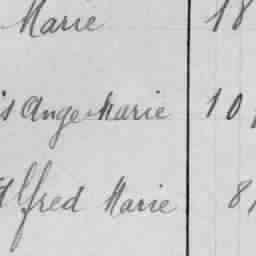 Marie 18
Ange Marie 10
Alfred Marie 8